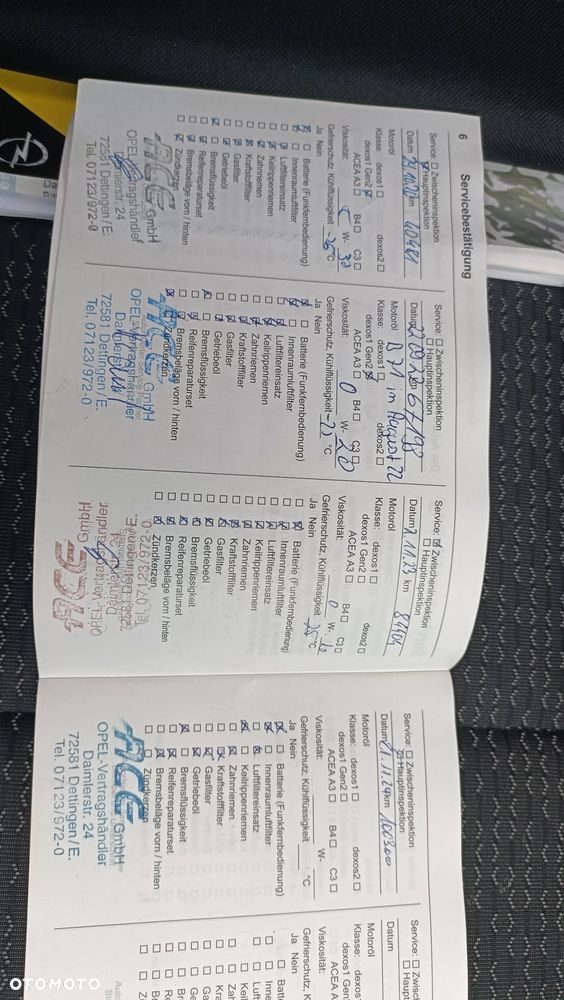 6 Servicebestätigung
Service: Zwischeninspektion
Hauptinspektion
Datum 29.10.20 km 40481
Motoröl
Klasse: dexos1 dexos2
dexos1 Gen2
ACEA A3 B4 C3
Viskosität: W- 30
Gefrierschutz, Kühlflüssigkeit -36 °C
Ja Nein
Batterie (Funkfernbedienung)
Innenraumluftfilter
Luftfiltereinsatz
Keilrippenriemen
Zahnriemen
Kraftstofffilter
Gasfilter
Getriebeöl
Bremsflüssigkeit
Reifenreparaturset
Bremsbeläge vorn / hinten
Zündkerzen
ACE GmbH
OPEL-Vertragshändler
Daimlerstr. 24
72581 Dettingen / E.
Tel. 07123/972-0
Service: Zwischeninspektion
Hauptinspektion
Datum km 67198
Motoröl B 71 im August 22
Klasse: dexos1 dexos2
dexos1 Gen2
ACEA A3 B4 C3
Viskosität: 0 W- 20
Gefrierschutz, Kühlflüssigkeit °C
Ja Nein
Batterie (Funkfernbedienung)
Innenraumluftfilter
Luftfiltereinsatz
Keilrippenriemen
Zahnriemen
Kraftstofffilter
Gasfilter
Getriebeöl
Bremsflüssigkeit
Reifenreparaturset
Bremsbeläge vorn / hinten
Zündkerzen
GmbH
OPEL-Vertragshändler
72581 Dettingen / E.
Tel. 07123/972-0
Service: Zwischeninspektion
Hauptinspektion
Datum 2.11.23 km 84401
Motoröl
Klasse: dexos1 dexos2
dexos1 Gen2
ACEA A3 B4 C3
Viskosität: 0 W-
Gefrierschutz, Kühlflüssigkeit °C
Ja Nein
Batterie (Funkfernbedienung)
Innenraumluftfilter
Luftfiltereinsatz
Keilrippenriemen
Zahnriemen
Kraftstofffilter
Gasfilter
Getriebeöl
Bremsflüssigkeit
Reifenreparaturset
Bremsbeläge vorn / hinten
Zündkerzen
ACE GmbH
OPEL-Vertragshändler
Service: Zwischeninspektion
Hauptinspektion
Datum 21.11.24 km 100300
Motoröl
Klasse: dexos1 dexos2
dexos1 Gen2
ACEA A3 B4 C3
Viskosität: W-
Gefrierschutz, Kühlflüssigkeit °C
Ja Nein
Batterie (Funkfernbedienung)
Innenraumluftfilter
Luftfiltereinsatz
Keilrippenriemen
Zahnriemen
Kraftstofffilter
Gasfilter
Getriebeöl
Bremsflüssigkeit
Reifenreparaturset
Bremsbeläge vorn / hinten
Zündkerzen
ACE GmbH
OPEL-Vertragshändler
Daimlerstr. 24
72581 Dettingen/E.
Tel. 07123/972-0
Service:
Datum
Motoröl
Klasse: dexos1
dexos1 Gen2
ACEA A3
Viskosität:
Gefrierschutz, Kühlf
Ja Nein
OTOMOTO